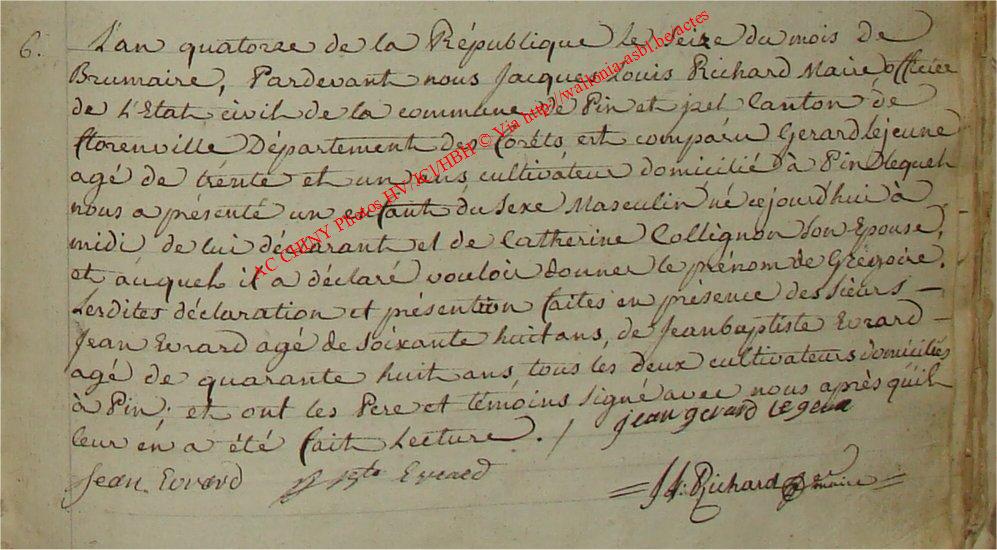 6. L'an quatorze de la République le seize du mois de
Brumaire, Pardevant nous Jacque Louis Richard Maire officiée
de L'Etat civil de la commune de Pin et pet Canton de
florenville Département des forêts est comparu Gerard lejeune
agé de trente et un ans cultivateur domicilié à Pin Lequel
nous a présenté un enfant du Sexe Masculin né cejourd'hui à
midi, de lui déclarant et de Catherine Collignon son Epouse,
et auquel il a déclaré vouloir donner le prénom de Grégoire.
Lesdites déclaration et présention faites en présence des Sieurs —
Jean Evrard agé de Soixante huit ans, de Jean baptiste Evrard —
agé de quarante huit ans, tous les deux cultivateurs domiciliés
à Pin; et ont les Pere et témoins signé avec nous après qu'il
leur en a été fait Lecture. /
jean gerard le geune
Jean Evrard
Bste Evrard
Richard maire
AC CHINY Photos HV/JCl/HBH © Via http://wallonia-asbl.be/actes